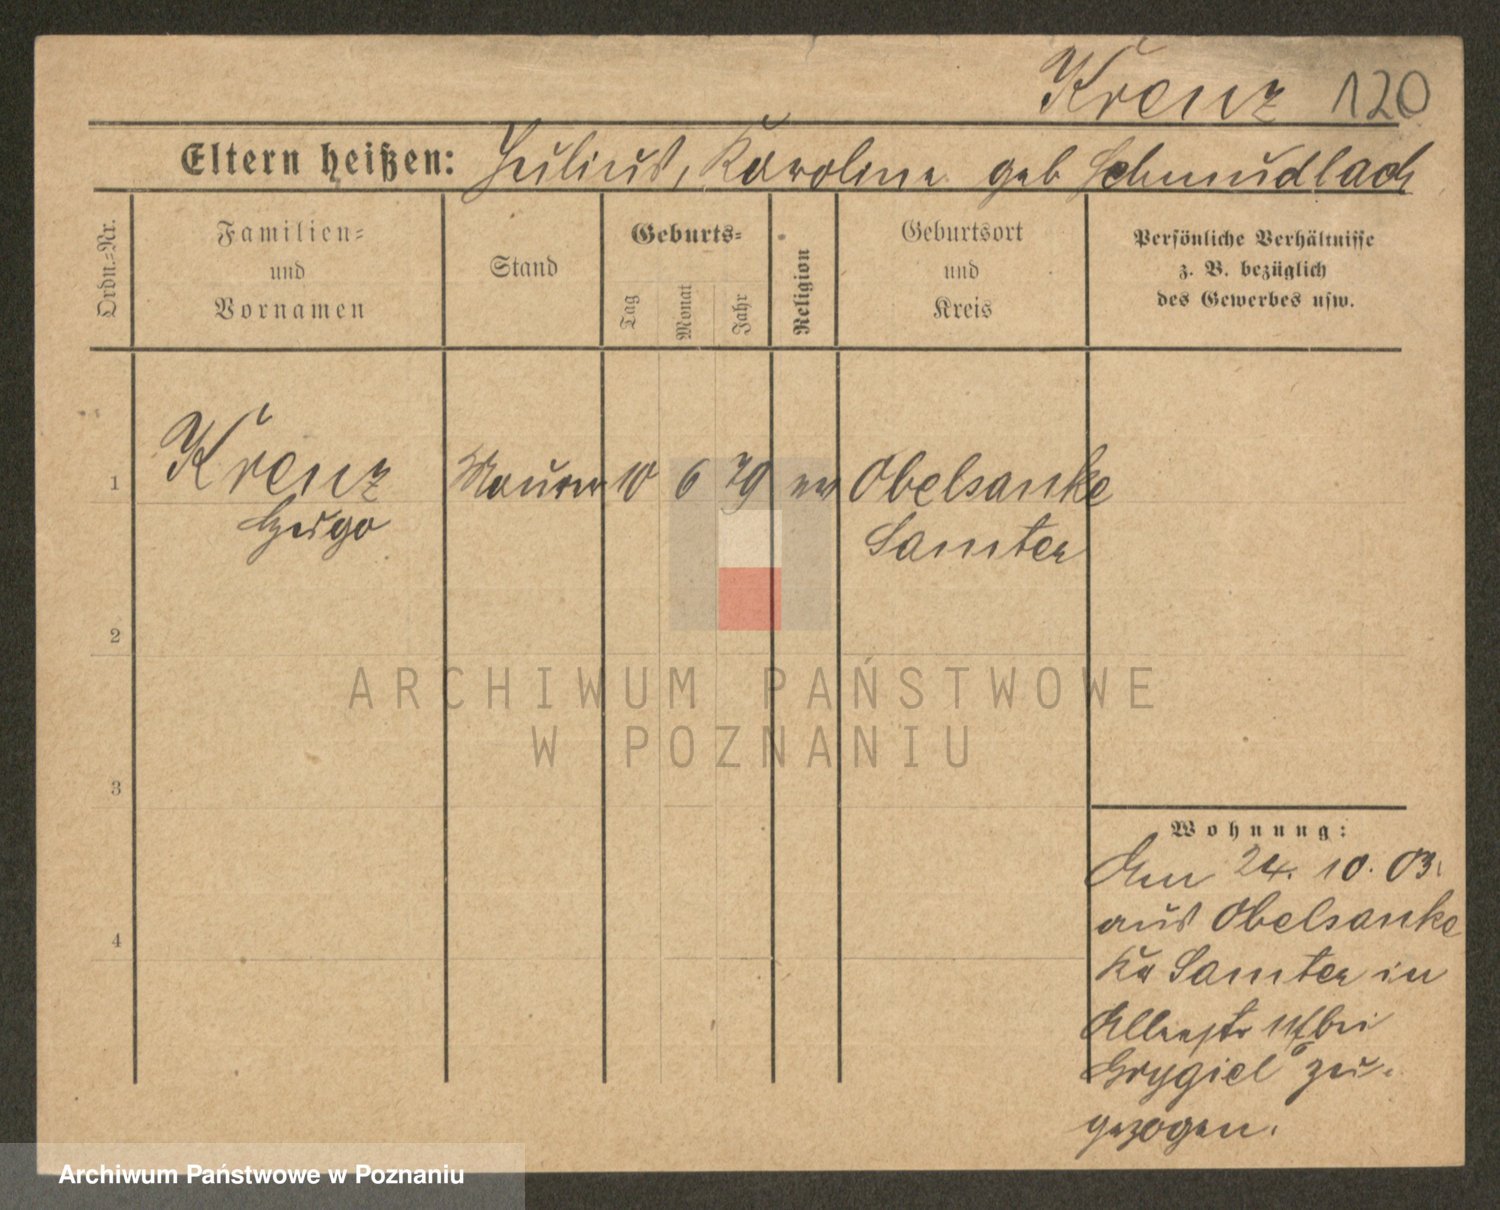 Krenz 120
Eltern heißen: Julius, Karoline geb Schmudlach
Ordn.=Nr.
Familien=
und
Vornamen
Stand
Geburts=
Tag
Monat
Jahr
Religion
Geburtsort
und
Kreis
Persönliche Verhältnisse
z. B. bezüglich
des Gewerbes usw.
1 Krenz Maurer 10 6 79 ev Obelsanke
Hugo Samter
2
3
4
Wohnung:
Am 24. 10. 03.
aus Obelsanke
Kr Samter in
bei
Grygiel zu-
gezogen.
ARCHIWUM PAŃSTWOWE
W POZNANIU
Archiwum Państwowe w Poznaniu